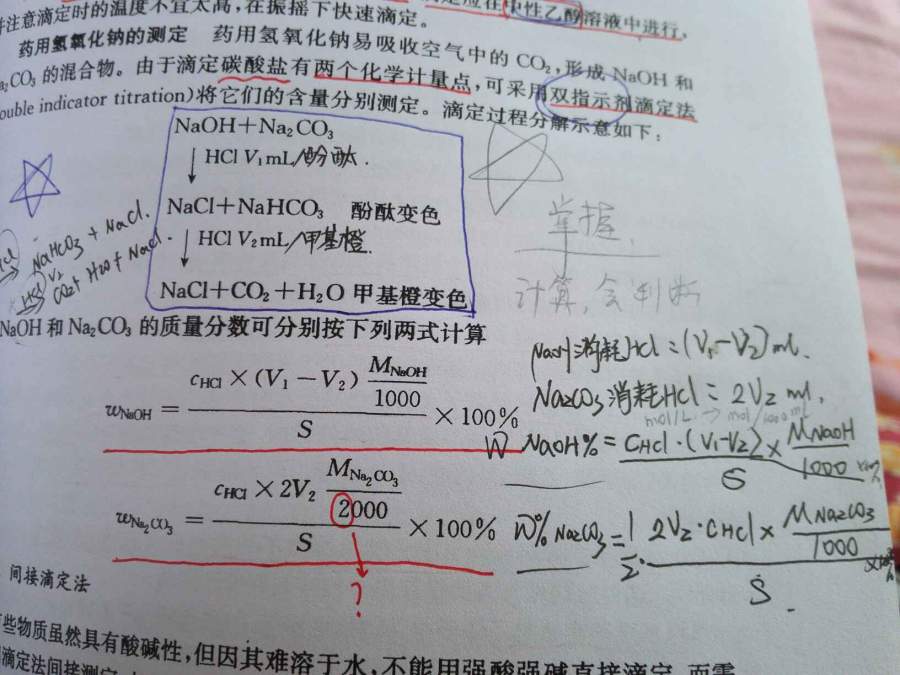 并注意滴定时的温度不宜太高,在振摇下快速滴定。
应在中性乙醇溶液中进行,
药用氢氧化钠的测定 药用氢氧化钠易吸收空气中的 CO₂,形成 NaOH 和
a₂CO₃ 的混合物。由于滴定碳酸盐有两个化学计量点,可采用双指示剂滴定法
ouble indicator titration)将它们的含量分别测定。滴定过程分解示意如下:
NaOH+Na₂CO₃
↓ HCl V₁mL/酚酞.
NaCl+NaHCO₃ 酚酞变色
↓ HCl V₂mL/甲基橙.
NaCl+CO₂+H₂O 甲基橙变色
NaHCO₃ + NaCl.
HCl V₂ CO₂+ H₂O + NaCl.
掌握.
计算,会判断
NaOH 和 Na₂CO₃ 的质量分数可分别按下列两式计算
NaOH消耗HCl=(V₁-V₂)ml.
Na₂CO₃消耗HCl= 2V₂ ml.
mol/L → mol/1000ml
w_NaOH = (c_HCl × (V₁ − V₂) M_NaOH/1000)/S × 100%
W NaOH% = CHCl·(V₁-V₂)/S × MNaOH/1000 ×100%
w_Na₂CO₃ = (c_HCl × 2V₂ M_Na₂CO₃/2000)/S × 100%
W% Na₂CO₃ = 1/2 · (2V₂·CHCl × MNa₂CO₃/1000)/S ×100%
?
间接滴定法
些物质虽然具有酸碱性,但因其难溶于水,不能用强酸强碱直接滴定,而需
滴定法间接测定